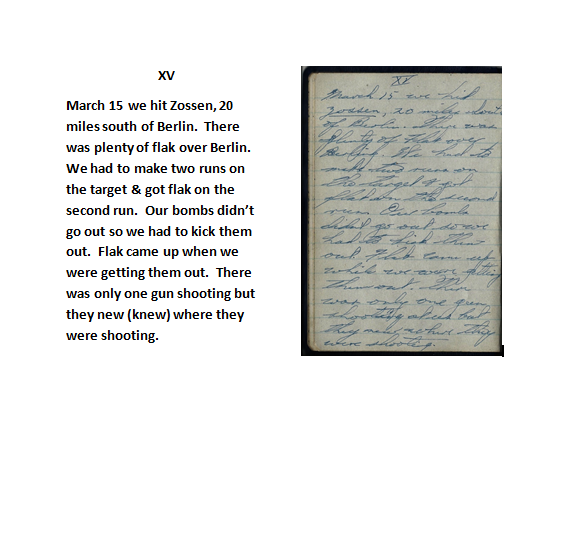 XV
March 15 we hit Zossen, 20
miles south of Berlin. There
was plenty of flak over Berlin.
We had to make two runs on
the target & got flak on the
second run. Our bombs didn't
go out so we had to kick them
out. Flak came up when we
were getting them out. There
was only one gun shooting but
they new (knew) where they
were shooting.
XV
March 15 we hit
Zossen, 20 miles south
of Berlin. There was
plenty of flak over
Berlin. We had to
make two runs on
the target & got
flak on the second
run. Our bombs
didn't go out so we
had to kick them
out. Flak came up
while we were getting
them out. There
was only one gun
shooting at us but
they new where they
were shooting.